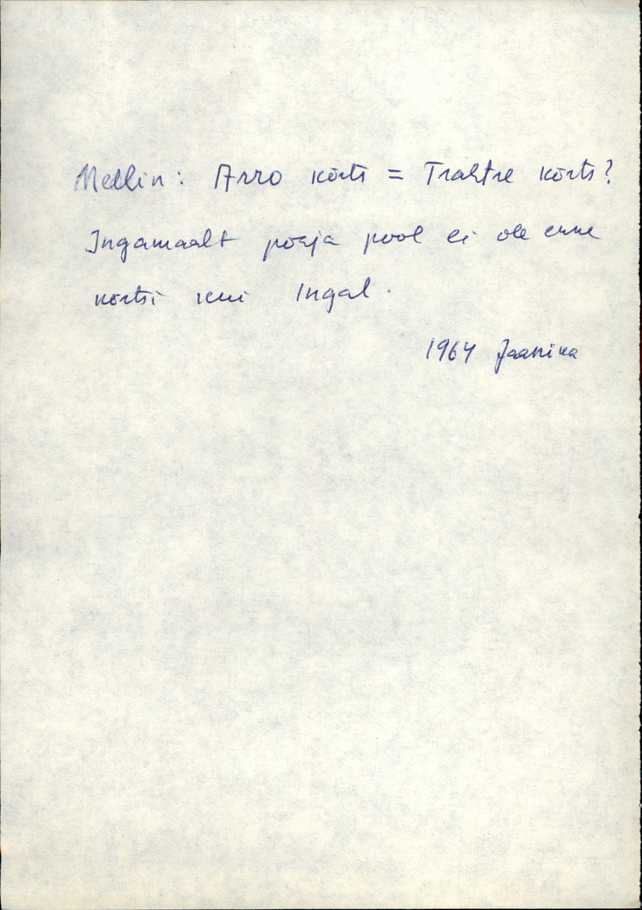 Mellin: Arro kõrts = Trahtre kõrts?
Ingamaalt põhja pool ei ole enne
kõrtsi kui Ingal.
1964 Jaanika